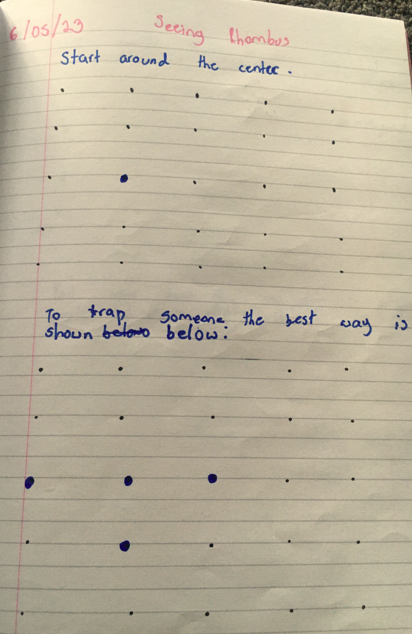 6/05/23 Seeing Rhombus
Start around the center.
To trap someone the best way is
shown below below: